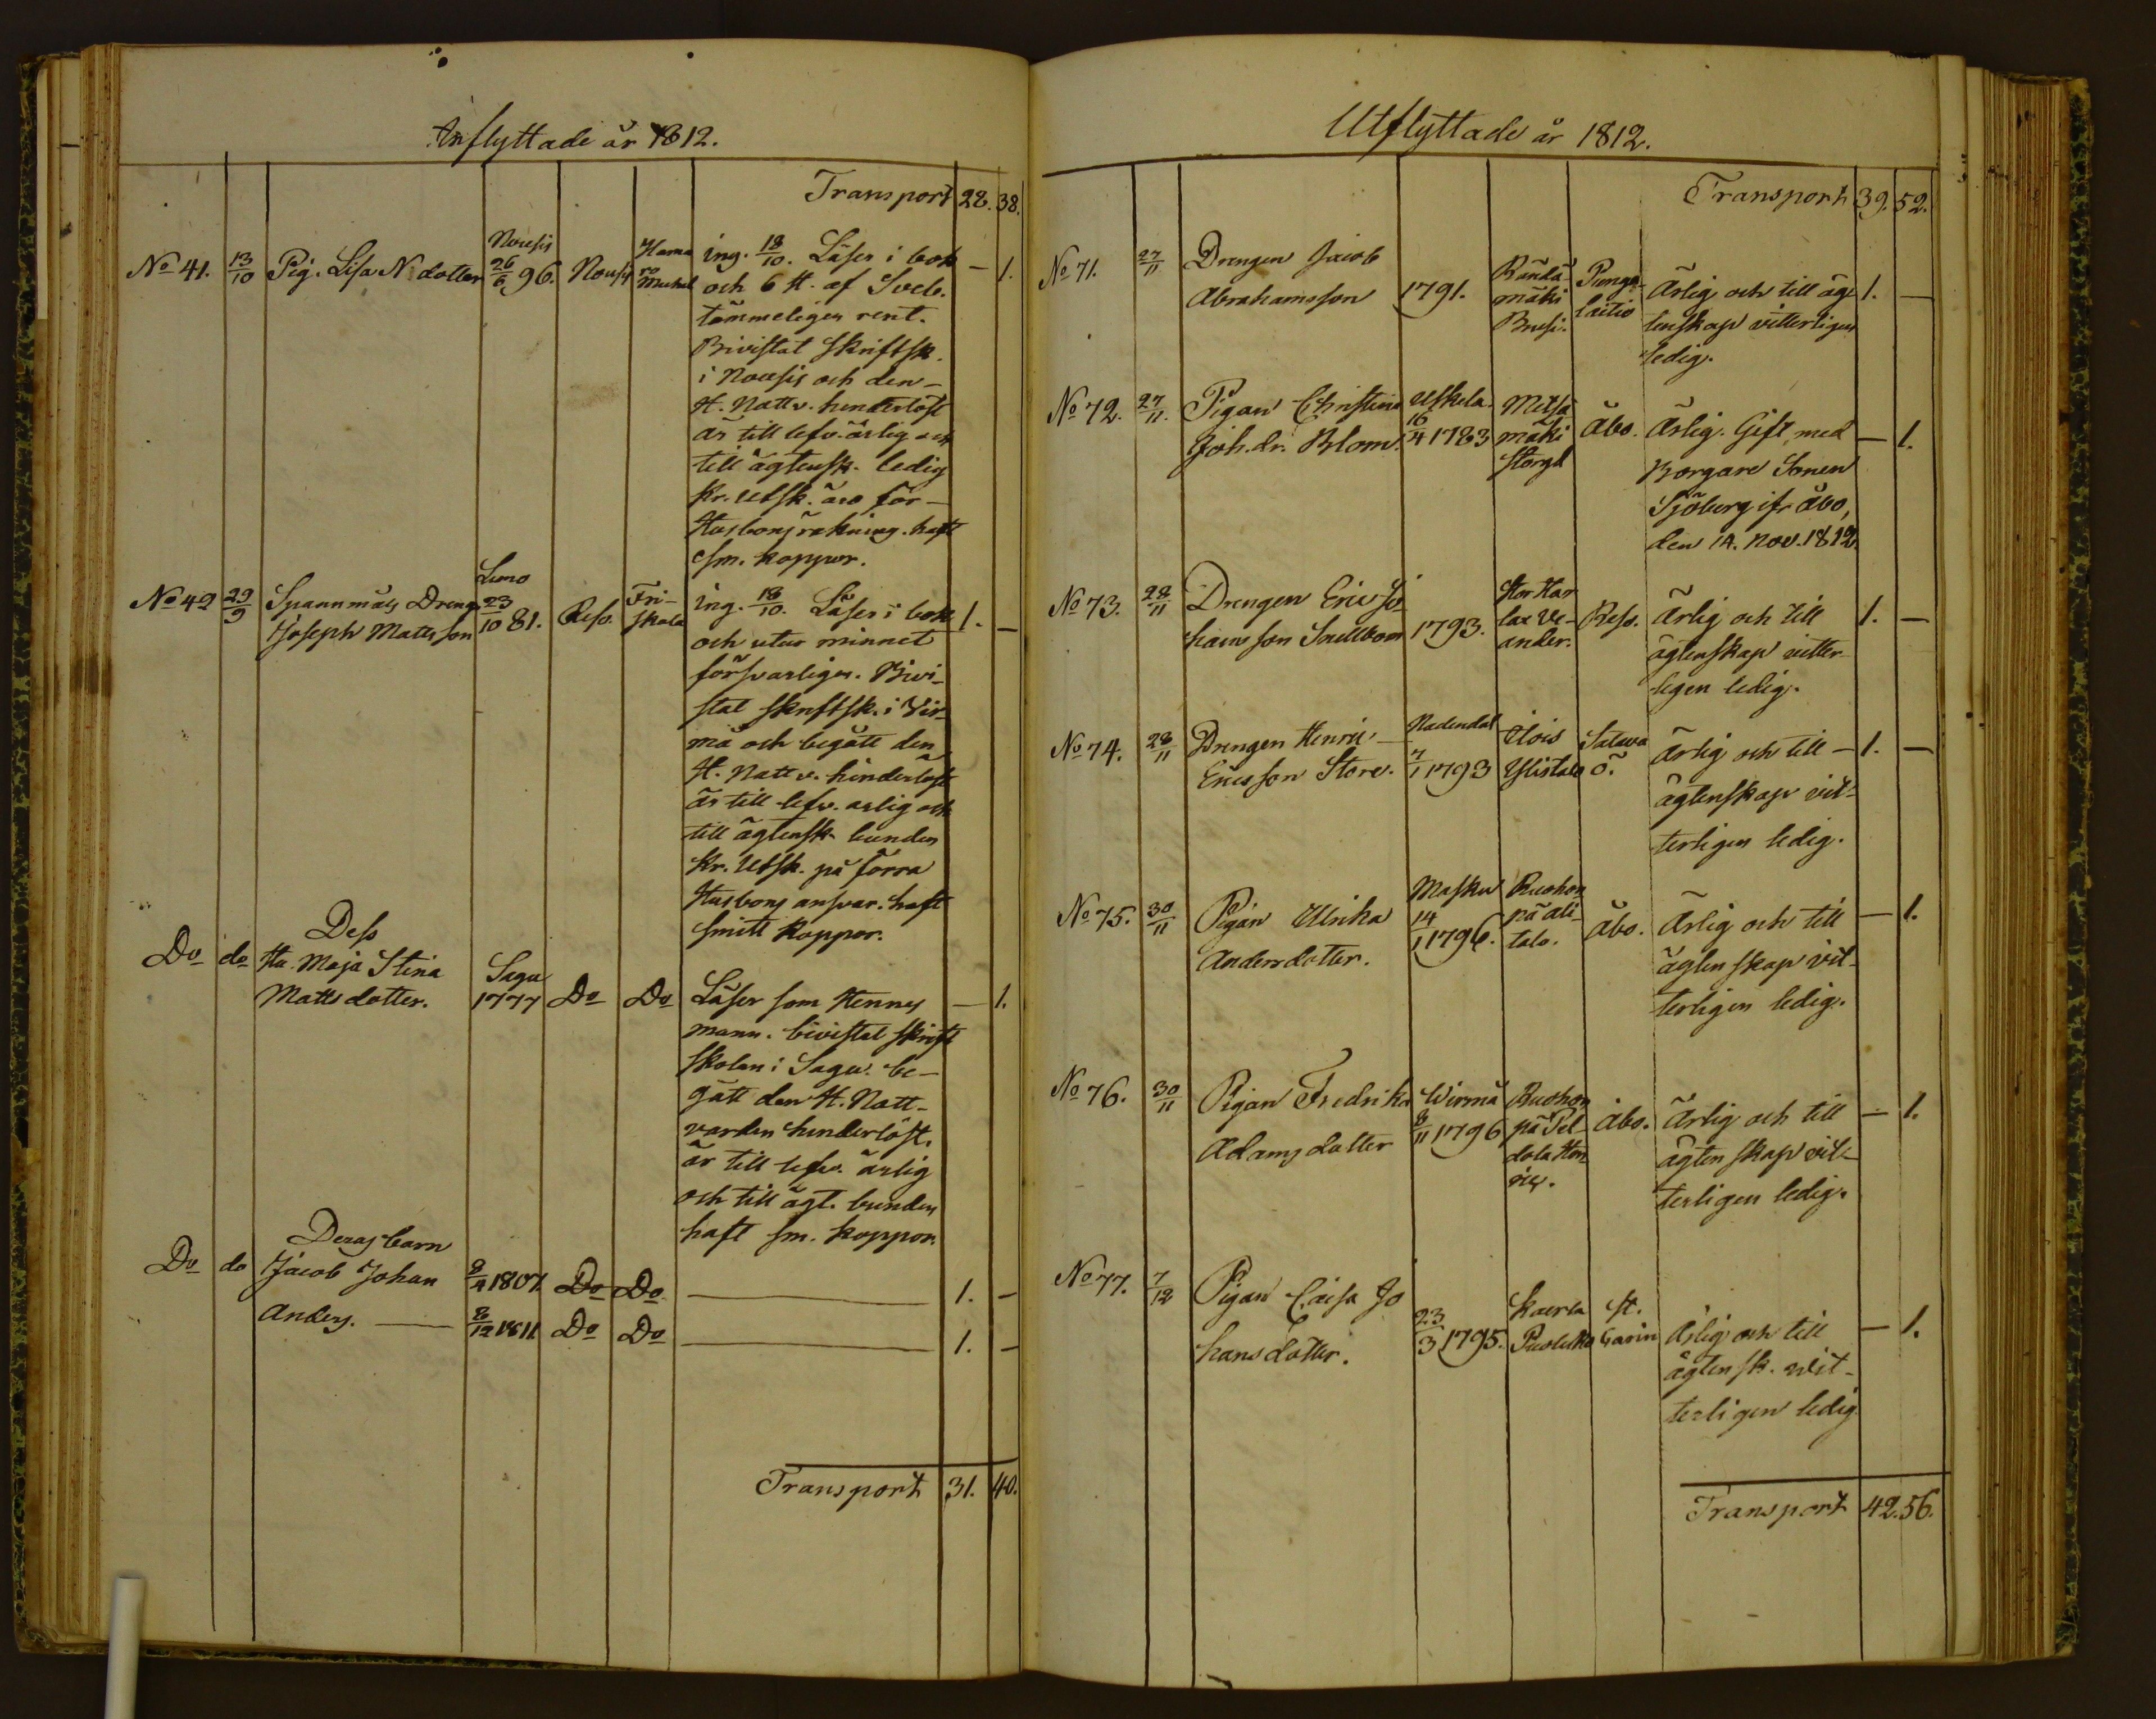 Inflyttade år 1812.
Transport 28. 38.
No 41. 13/10 Pig. Lisa N. dotter Nousis 26/6 96. Nousis Hema ro Michel ing. 18/10. Läser i bok — 1.
och 6 H. af Sveb.
tämmeligen rent.
Bivistat skriftsk.
i Nousis och den
H. Nattv. hinderlöst
är till lefv. ärlig och
till ägtensk. ledig
Kr. Utsk. äro för
Husbons räkning. haft
sm. koppor.
No 42 29/9 Spannmåls Dreng Joseph Matsson Lemo 23/10 81. Reso. Friskala ing. 18/10. Läser i bok 1. —
och utur minnet
försvarligen. Bivi-
stat skriftsk. i Vir-
mo och begått den
H. Nattv. hinderlöst
är till lefv. ärlig och
till ägtensk. bunden
Kr. Utsk. på förra
Husbons ansvar. haft
smitt koppor.
Do do Dess Hu. Maja Stina Matts dotter. Sagu 1777 Do Do Läser som Hennes — 1.
mann. bivistat skrift
skolan i Sagu. be-
gått den H. Natt-
varden hinderlöst.
är till lefv. ärlig
och till ägt. bunden
haft sm. koppor.
Deras barn
Do do Jacob Johan 8/4 1807. Do Do — 1. —
Anders. — 8/12 1811 Do Do — 1. —
Transport 31. 40.
Utflyttade år 1812.
Transport 39. 52.
No 71. 27/11 Drengen Jacob Abrahamsson 1791. Rändämäki Ärlig och till äg- 1. —
tenskap vitterligen
ledig.
No 72. 27/11. Pigan Christina Joh. dr. Blom. Uskela. 16/4 1783 Metsämäki Åbo. Ärlig. Gift med — 1.
Borgare Sonen
Sjöberg ifr. Åbo,
den 14. Nov. 1812.
No 73. 28/11 Drengen Eric Johansson Snellbom 1793. Reso. Ärlig och till 1. —
ägtenskap vitter-
ligen ledig.
No 74. 28/11 Drengen Henric Ericsson Store. Nadendal 7/1 1793 Ilois Ylistalo Satava ö. Ärlig och till — 1. —
ägtenskap vit-
terligen ledig.
No 75. 30/11 Pigan Ulrika Andersdotter. Masku 14/1 1796. Ruohonpä Alitalo. Åbo. Ärlig och till — 1.
ägtenskap vit-
terligen ledig.
No 76. 30/11 Pigan Fredrika Adams dotter Wirmå 8/11 1796 Ruohonpä Åbo. Ärlig och till — 1.
ägtenskap vit-
terligen ledig.
No 77. 7/12 Pigan Caisa Johans dotter. 23/3 1795. Kaerla St. Garin Ärlig och till — 1.
ägtensk. vit-
terligen ledig
Transport 42. 56.